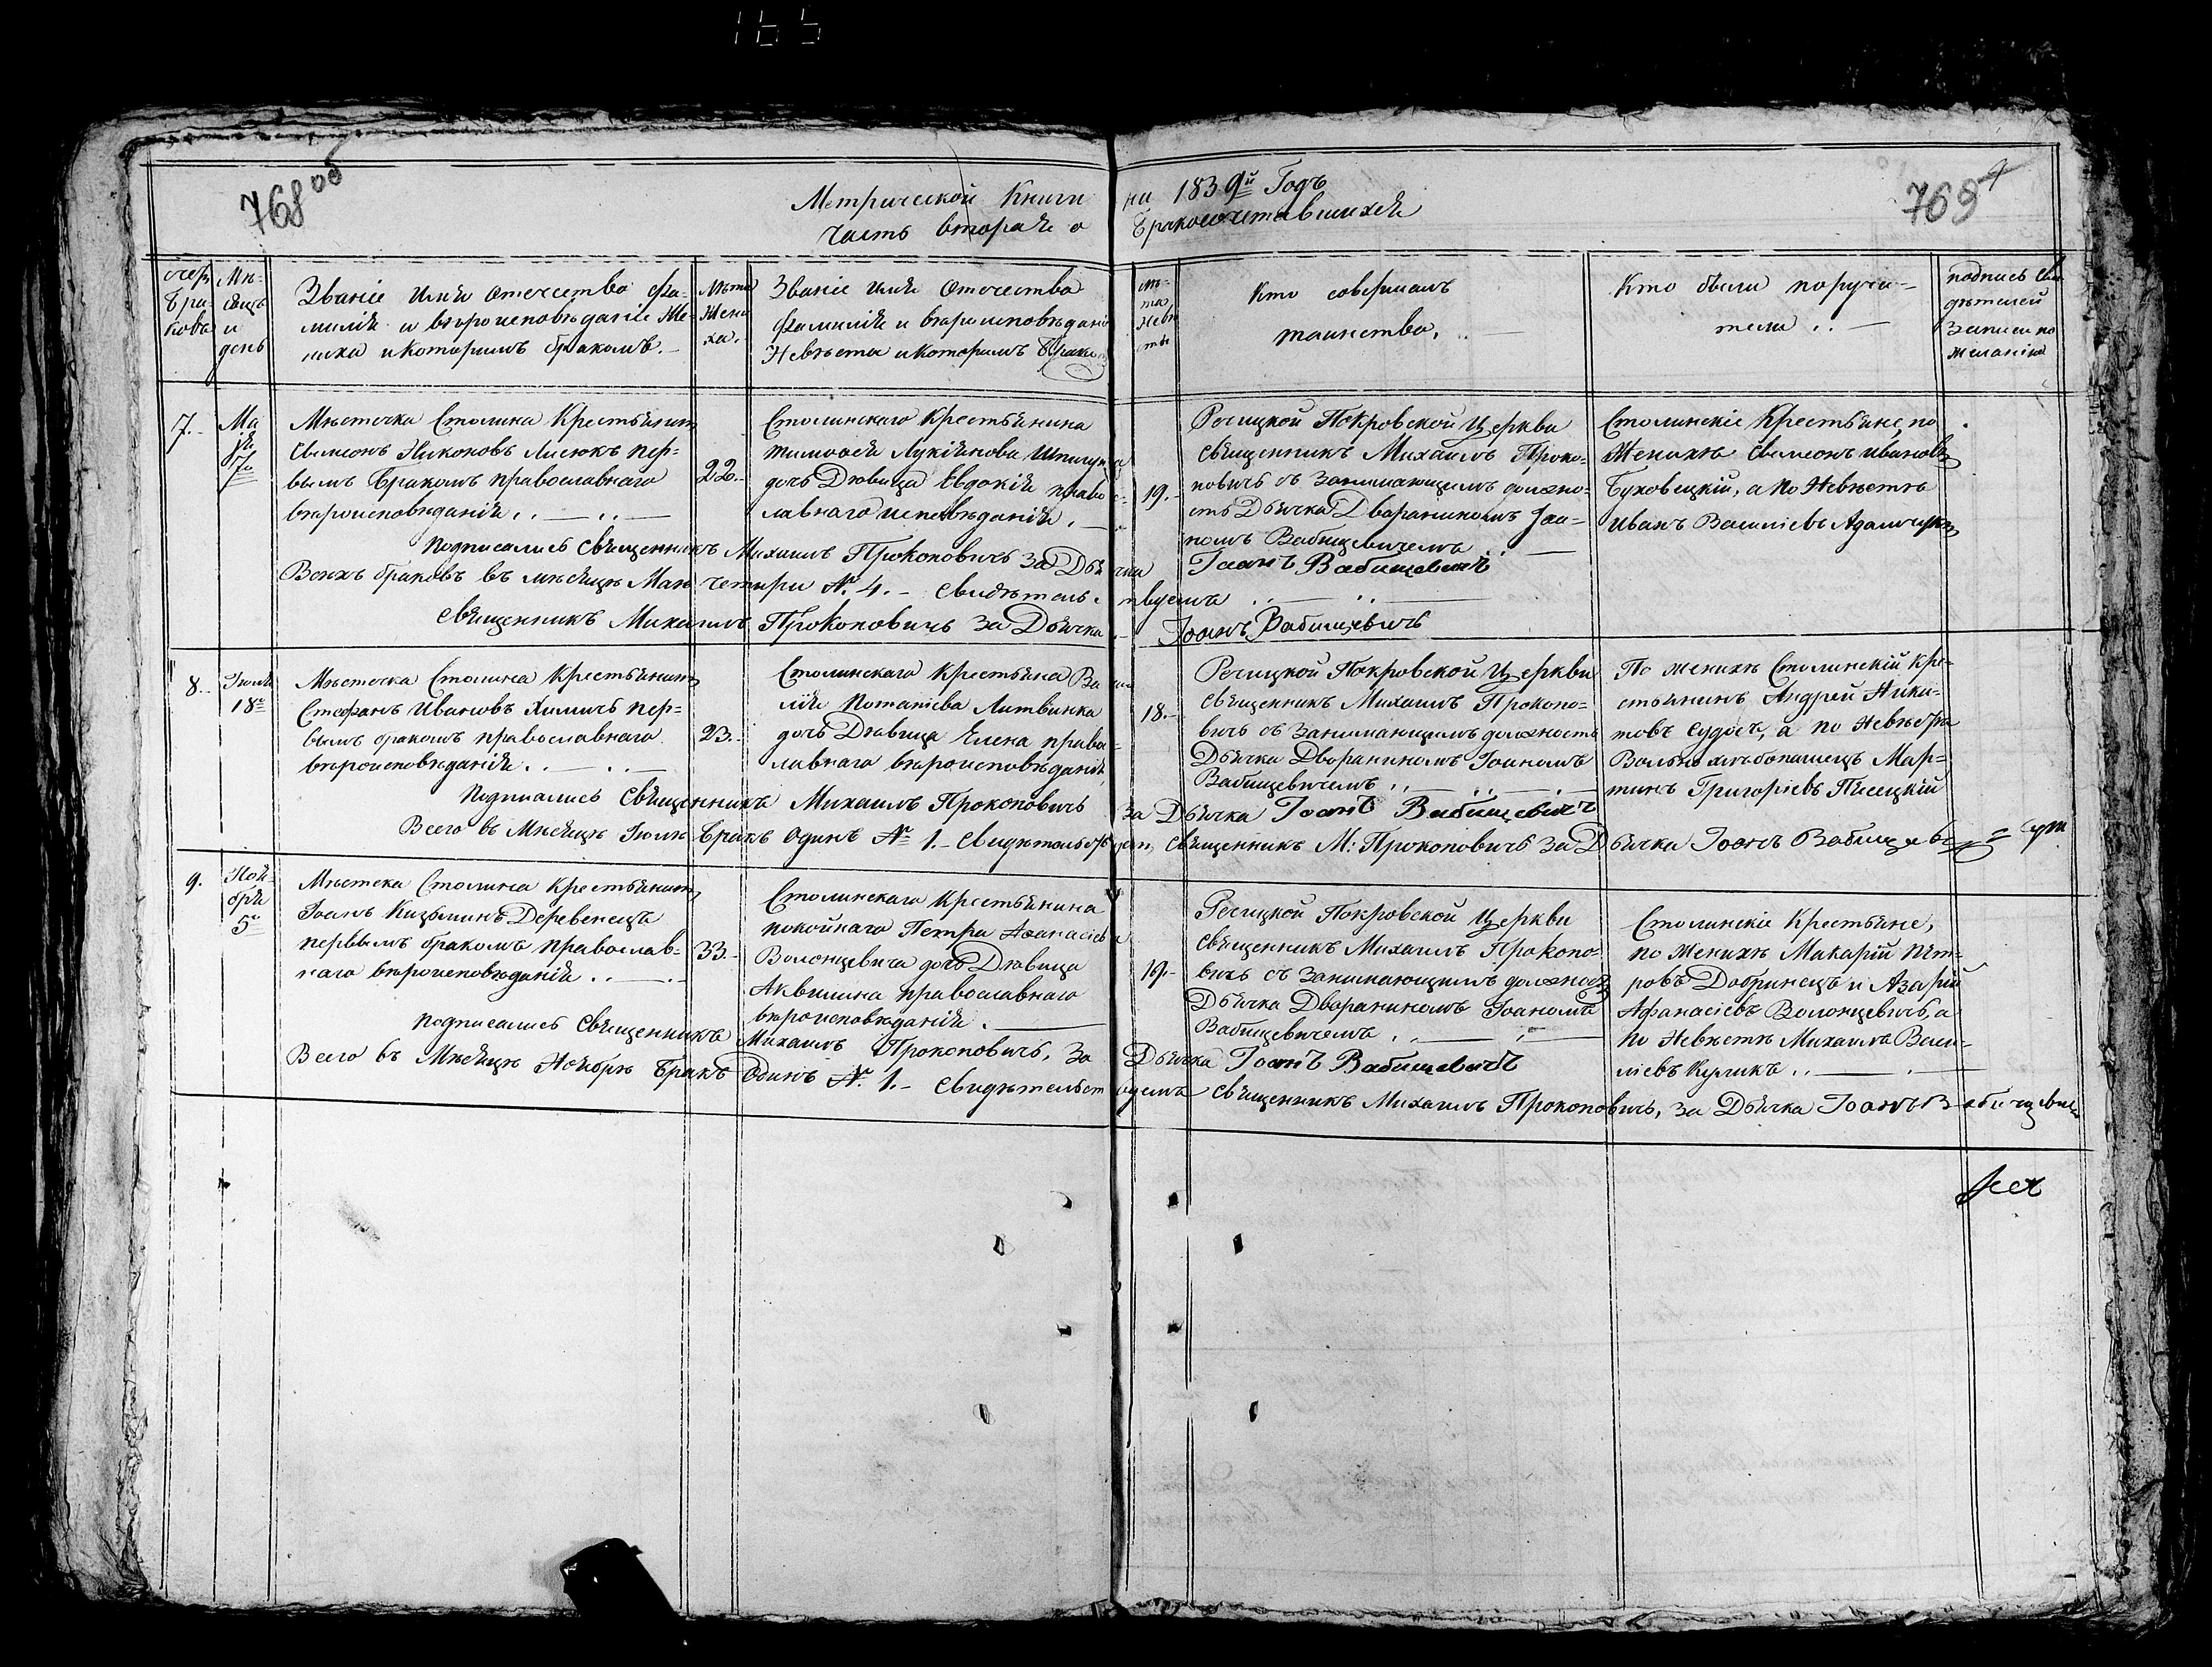 165
768об
769
Метрической Книги на 1839й Годъ
часть вторая о Бракосочетавшихся
очер Бра- ковъ
Мѣ- сяцъ и день
Званіе имя отечество фа-
милія и вѣроисповѣданіе Же-
ниха и которымъ бракомъ.
Лѣта Жени ха.
Званіе имя отечество
фамилія и вѣроисповѣданіе
Невѣсты и которымъ Бракомъ
лѣ- та Невѣ сты
Кто совершалъ
таинство.
Кто были поручи-
тели
подпись сви
дѣтелей
записи по
желанію
7.
Ма
я
7о
Мѣстечка Столина Крестьянинъ
Симеонъ Никоновъ Лисюкъ пер-
вымъ Бракомъ православнаго
вѣроисповѣданія
22.
Столинскаго Крестьянина
Тимоѳея Лукіянова
дочь Дѣвица Евдокія право
славнаго исповѣданія.
19.
Речицкой Покровской Церкви
Священникъ Михаилъ Проко-
повичъ съ занимающимъ должно-
сть Дьячка Дворяниномъ Іоа-
номъ Вабищевичемъ
Столинскіе Крестьяне, по
Женихѣ Симеонъ Ивановъ
Буховецкій, а по Невѣстѣ
Иванъ Василіевъ
Подписались Священникъ Михаилъ Прокоповичъ за Дьячка Іоанъ Вабищевичъ
Всѣхъ браковъ въ мѣсяцѣ Маѣ четыри №. 4. Свидѣтельствуемъ
Священникъ Михаилъ Прокоповичъ за Дьячка Іоанъ Вабищевичъ
8.
Іюля
18о
Мѣстечка Столина Крестьянинъ
Стефанъ Ивановъ Химичъ пер-
вымъ бракомъ православнаго
вѣроисповѣданія
23.
Столинскаго Крестьяна Васи
лія Потапіева Литвинка
дочь Дѣвица Елена право-
славнаго вѣроисповѣданія
18.
Речицкой Покровской Церкви
Священникъ Михаилъ Прокопо-
вичъ съ занимающимъ должность
Дьячка Дворяниномъ Іоаномъ
Вабищевичемъ
По женихѣ Столинскій Кре-
стьянинъ Андрей Ники-
товъ а по Невѣстѣ
Вольно хлѣбопашецъ Мар-
тинъ Григоріевъ Пѣсецкій
Подписались Священникъ Михаилъ Прокоповичъ за Дьячка Іоанъ Вабищевичъ
Всего въ Мѣсяцѣ Іюлѣ Бракъ Одинъ № 1. Свидѣтельствуемъ, Священникъ М: Прокоповичъ за Дьячка Іоанъ
9.
Ноя-
бря
5о
Мѣстека Столина Крестьянинъ
Іоанъ Кизьминъ Деревенецъ
первымъ бракомъ православ-
наго вѣроисповѣданія
33.
Столинскаго Крестьянина
покойнаго Петра Аѳанасіева
Волонцевича дочь Дѣвица
Аквилина православнаго
вѣроисповѣданія.
19.
Речицкой Покровской Церкви
Священникъ Михаилъ Прокопо-
вичъ съ занимающимъ должность
Дьячка Дворяниномъ Іоаномъ
Вабищевичемъ
Столинскіе Крестьяне,
по Женихѣ Макарій Пет-
ровъ Добринецъ и Азарій
Афанасіевъ Волонцевичъ, а
по Невѣстѣ Михаилъ Васи-
ліевъ Куликъ
Подписались Священникъ Михаилъ Прокоповичъ, за Дьячка Іоанъ Вабищевичъ
Всего въ Мѣсяцѣ Ноябрѣ Бракъ Одинъ №. 1. Свидѣтельствуемъ Священникъ Михаилъ Прокоповичъ, за Дьячка Іоанъ Вабищевичъ